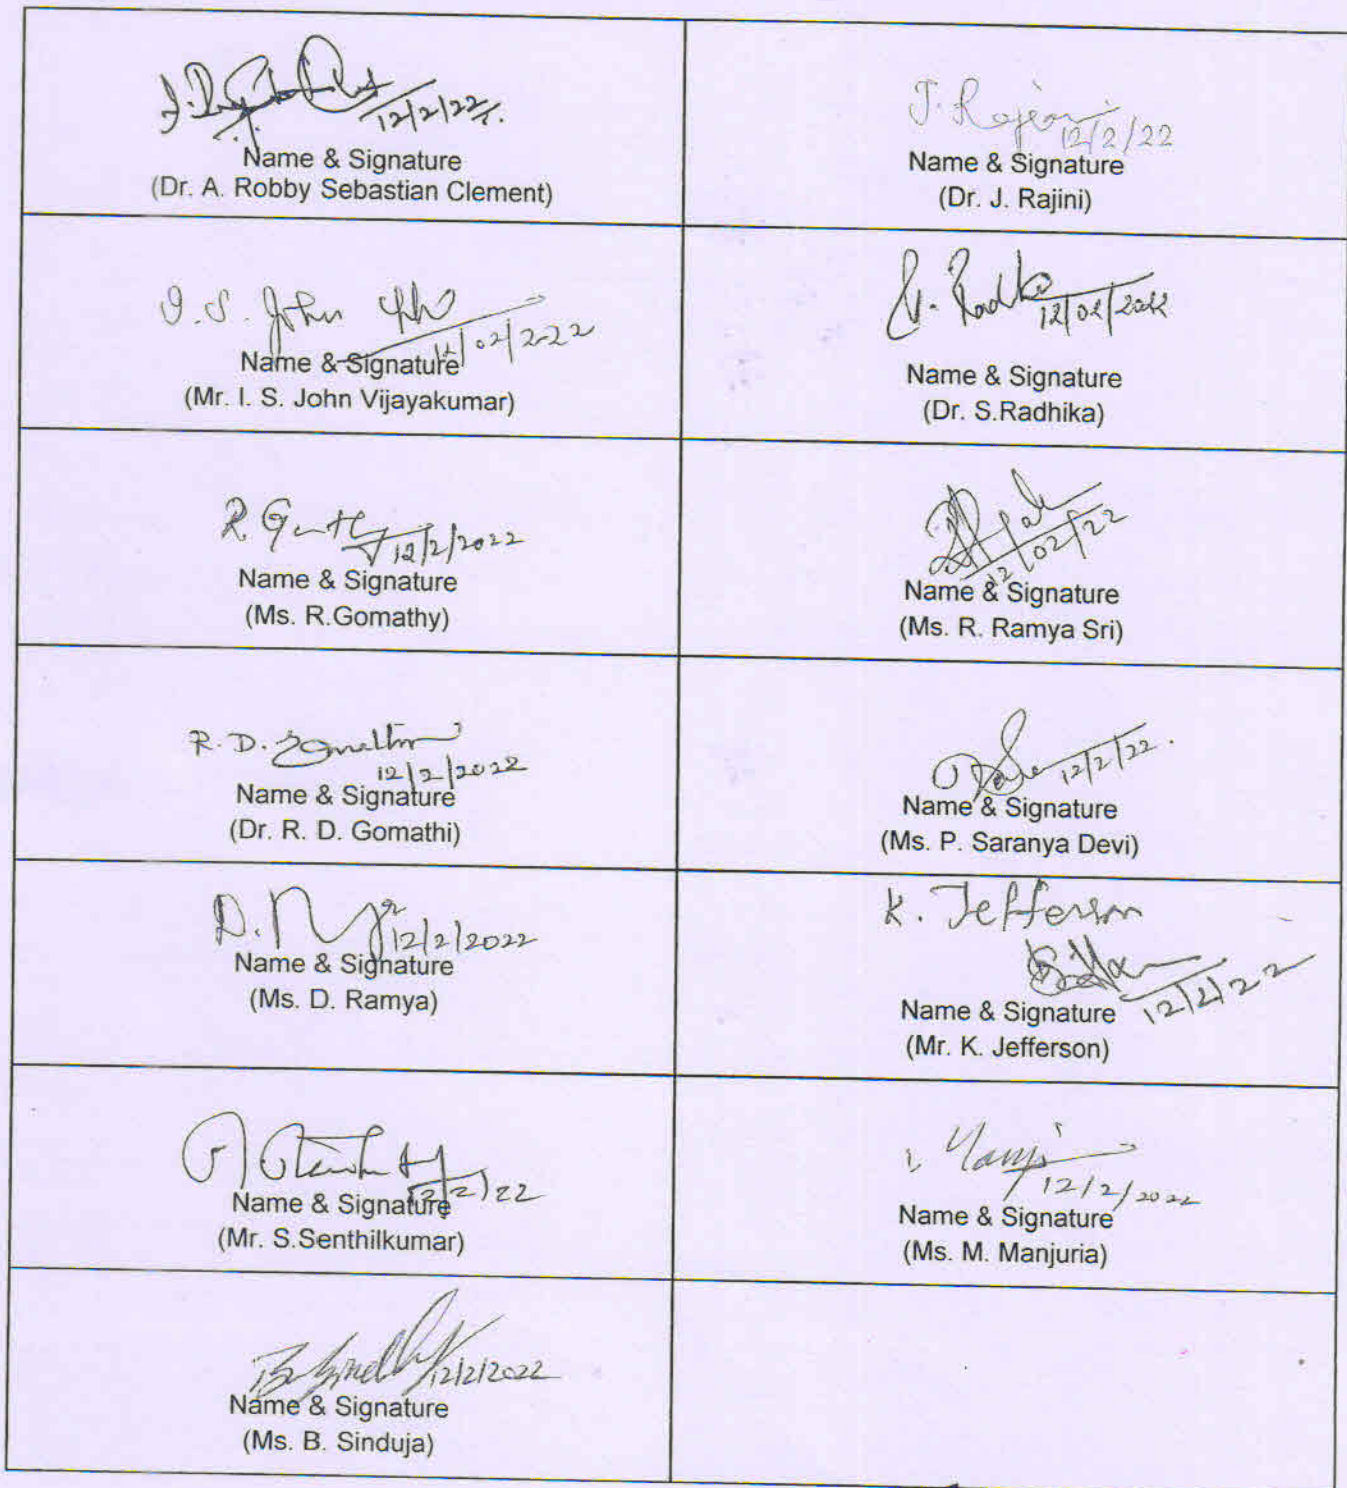 12/2/22
Name & Signature
(Dr. A. Robby Sebastian Clement)
J. Rajini
12/2/22
Name & Signature
(Dr. J. Rajini)
I. S. John
12/02/2022
Name & Signature
(Mr. I. S. John Vijayakumar)
12/02/2022
Name & Signature
(Dr. S.Radhika)
12/2/2022
Name & Signature
(Ms. R.Gomathy)
12/02/22
Name & Signature
(Ms. R. Ramya Sri)
R. D.
12/2/2022
Name & Signature
(Dr. R. D. Gomathi)
12/2/22.
Name & Signature
(Ms. P. Saranya Devi)
12/2/2022
Name & Signature
(Ms. D. Ramya)
K. Jefferson
12/2/22
Name & Signature
(Mr. K. Jefferson)
12/2/22
Name & Signature
(Mr. S.Senthilkumar)
12/2/2022
Name & Signature
(Ms. M. Manjuria)
12/2/2022
Name & Signature
(Ms. B. Sinduja)